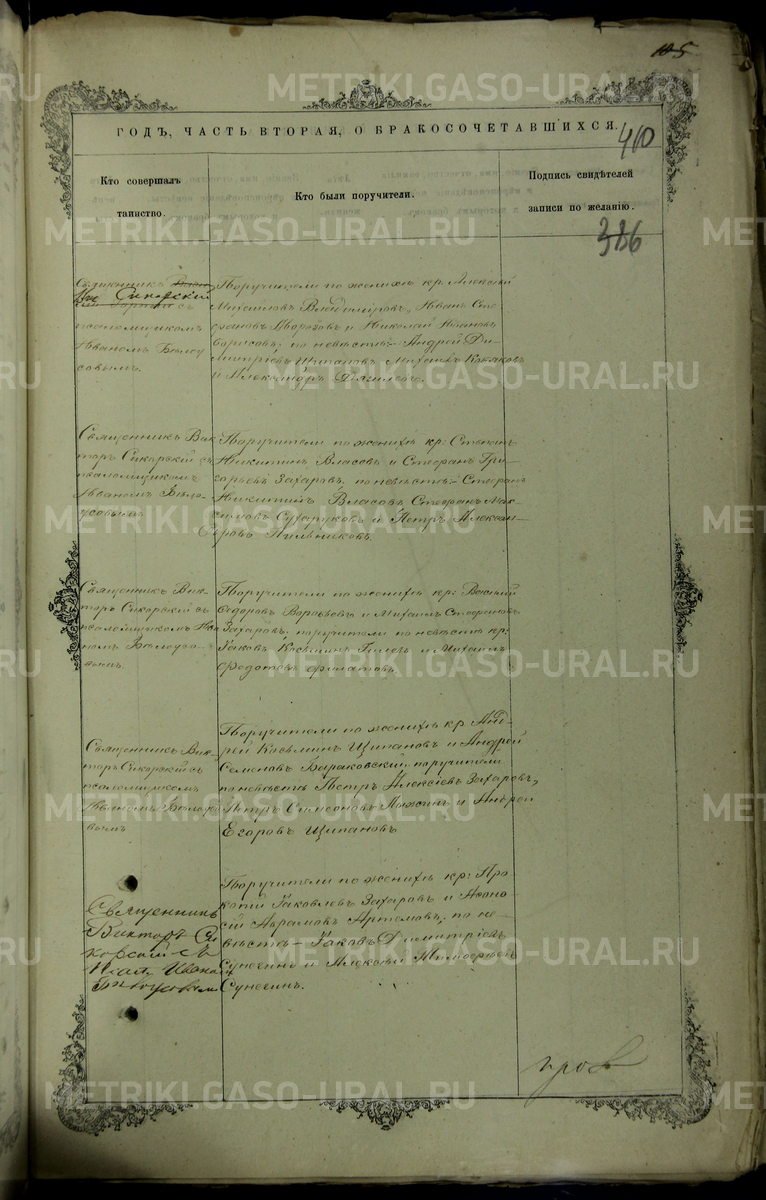 105
METRIKI.GASO-URAL.RU METRIKI.GASO-URAL.RU
ГОДЪ, ЧАСТЬ ВТОРАЯ, О БРАКОСОЧЕТАВШИХСЯ.
410
Кто совершалъ
таинство.
Кто были поручители.
Подпись свидѣтелей
записи по желанію.
386
Священникъ
Сикорскій
съ
псаломщикомъ
Иваномъ Бѣлоу
совымъ.
Поручители по женихѣ кр. Алексѣй
Михаиловъ Владиміровъ, Иванъ Сте
фановъ и Николай Ивановъ
Борисовъ; по невѣстѣ – Андрей Ди
митріевъ Щипановъ, Михаилъ
и Александръ
Священникъ Вик
торъ Сикорскій съ
псаломщикомъ
Иваномъ Бѣло-
усовымъ
Поручители по женихѣ кр: Степанъ
Никитинъ Власовъ и Стефанъ Гри
горьевъ Захаровъ, по невѣстѣ – Стефанъ
Никитинъ Власовъ, Стефанъ Мак
симовъ Сухоруковъ и Петръ Алексан
дровъ Пильниковъ.
Священникъ Вик
торъ Сикорскій съ
псаломщикомъ Ива
номъ Бѣлоусо-
вымъ.
Поручители по женихѣ кр: Василій
Ѳедоровъ Воробьевъ и Михаилъ Стефановъ
Захаровъ; поручители по невѣстѣ кр:
Яковъ Косьминъ и Михаилъ
Ѳедотовъ Филатовъ.
Священникъ Вик
торъ Сикорскій съ
псаломщикомъ
Иваномъ Бѣлоусо
вымъ
Поручители по женихѣ кр Анд
рей Косьминъ Щипановъ и Андрей
Семеновъ Бараковскій; поручители
по невѣстѣ Петръ Алексіевъ Захаровъ,
Петръ Симеоновъ и Андрей
Егоровъ Щипановъ
Священникъ
Викторъ Си
корскій съ
псал. Иваномъ
Бѣлоусовымъ
Поручители по женихѣ кр: Про
копій Яковлевъ Захаровъ и Афона
сій Абрамовъ Артемовъ; по не-
вѣстѣ – Яковъ Димитріевъ
Сунегинъ и Алексѣй Тимофеевъ
Сунегинъ.